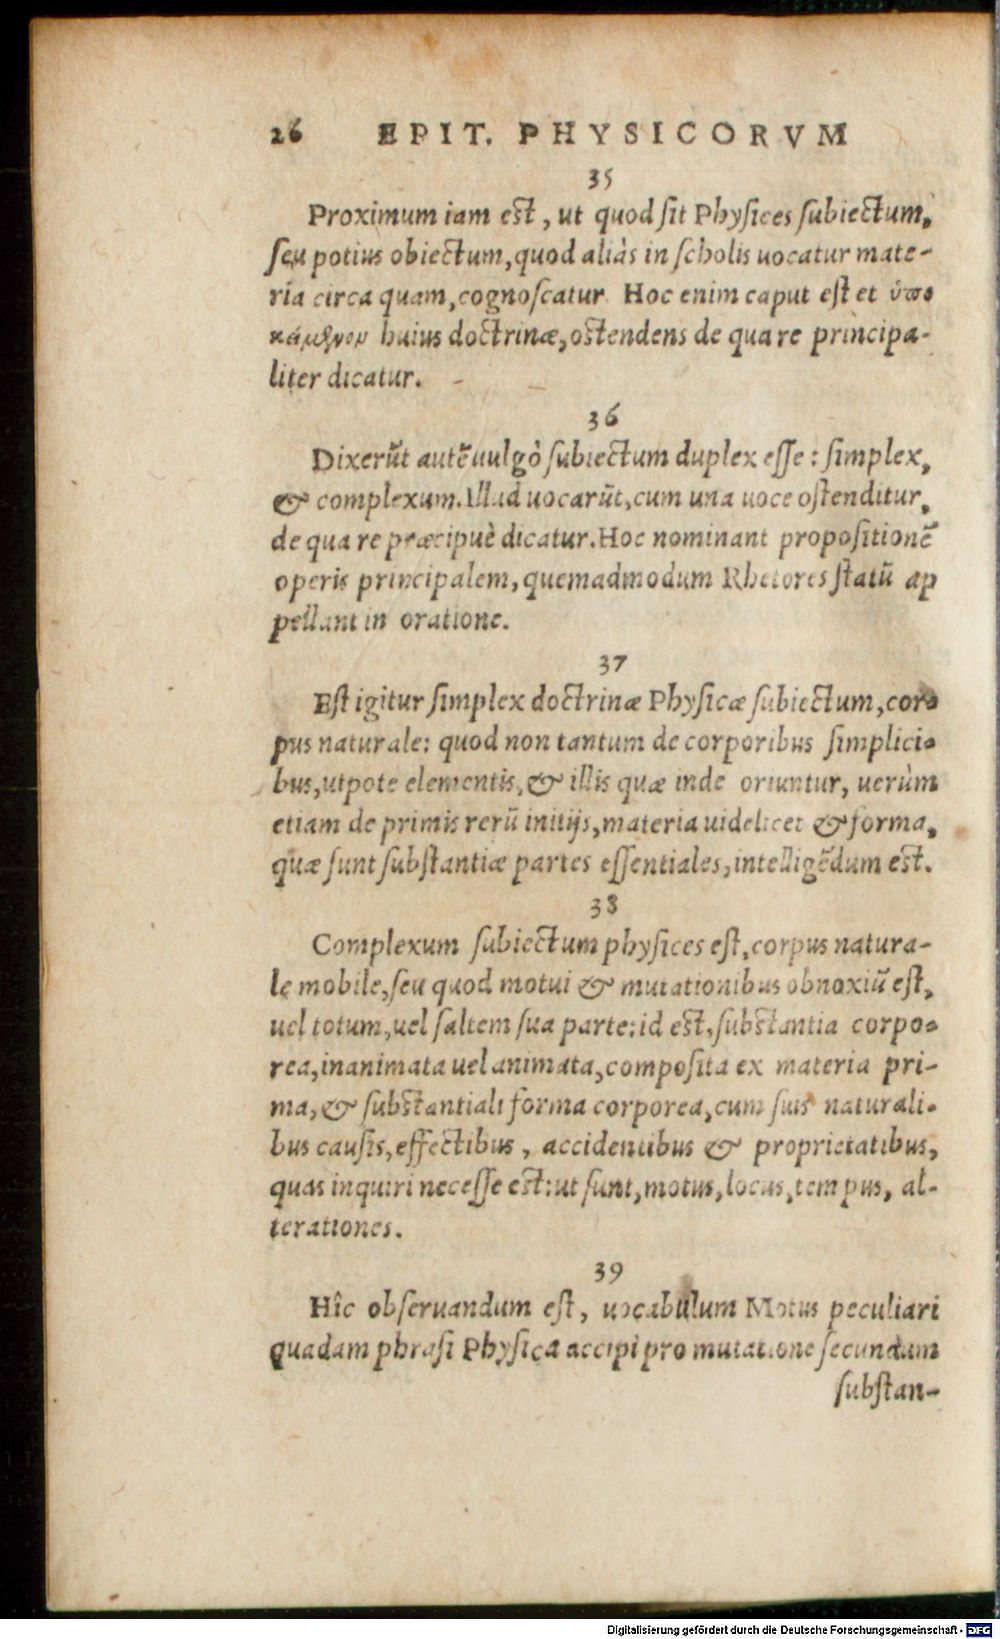 26 EPIT. PHYSICORVM
35
Proximum iam est, ut quod sit Physices subiectum,
seu potius obiectum, quod aliàs in scholis uocatur mate-
ria circa quam, cognoscatur. Hoc enim caput est et ὑπο
κείμενον huius doctrinæ, ostendens de qua re principa-
liter dicatur.
36
Dixerūt autē uulgò subiectum duplex esse: simplex,
& complexum. Illud uocarūt, cum una uoce ostenditur,
de qua re præcipuè dicatur. Hoc nominant propositionē
operis principalem, quemadmodum Rhetores statū ap
pellant in oratione.
37
Est igitur simplex doctrinæ Physicæ subiectum, cor-
pus naturale: quod non tantum de corporibus simplici-
bus, utpote elementis, & illis quæ inde oriuntur, uerùm
etiam de primis rerū initijs, materia uidelicet & forma,
quæ sunt substantiæ partes essentiales, intelligēdum est.
38
Complexum subiectum physices est, corpus natura-
le mobile, seu quod motui & mutationibus obnoxiū est,
uel totum, uel saltem sua parte: id est, substantia corpo-
rea, inanimata uel animata, composita ex materia pri-
ma, & substantiali forma corporea, cum suis naturali-
bus causis, effectibus, accidentibus & proprietatibus,
quas inquiri necesse est: ut sunt, motus, locus, tempus, al-
terationes.
39
Hîc obseruandum est, uocabulum Motus peculiari
quadam phrasi Physica accipi pro mutatione secundum
substan-
Digitalisierung gefördert durch die Deutsche Forschungsgemeinschaft - DFG